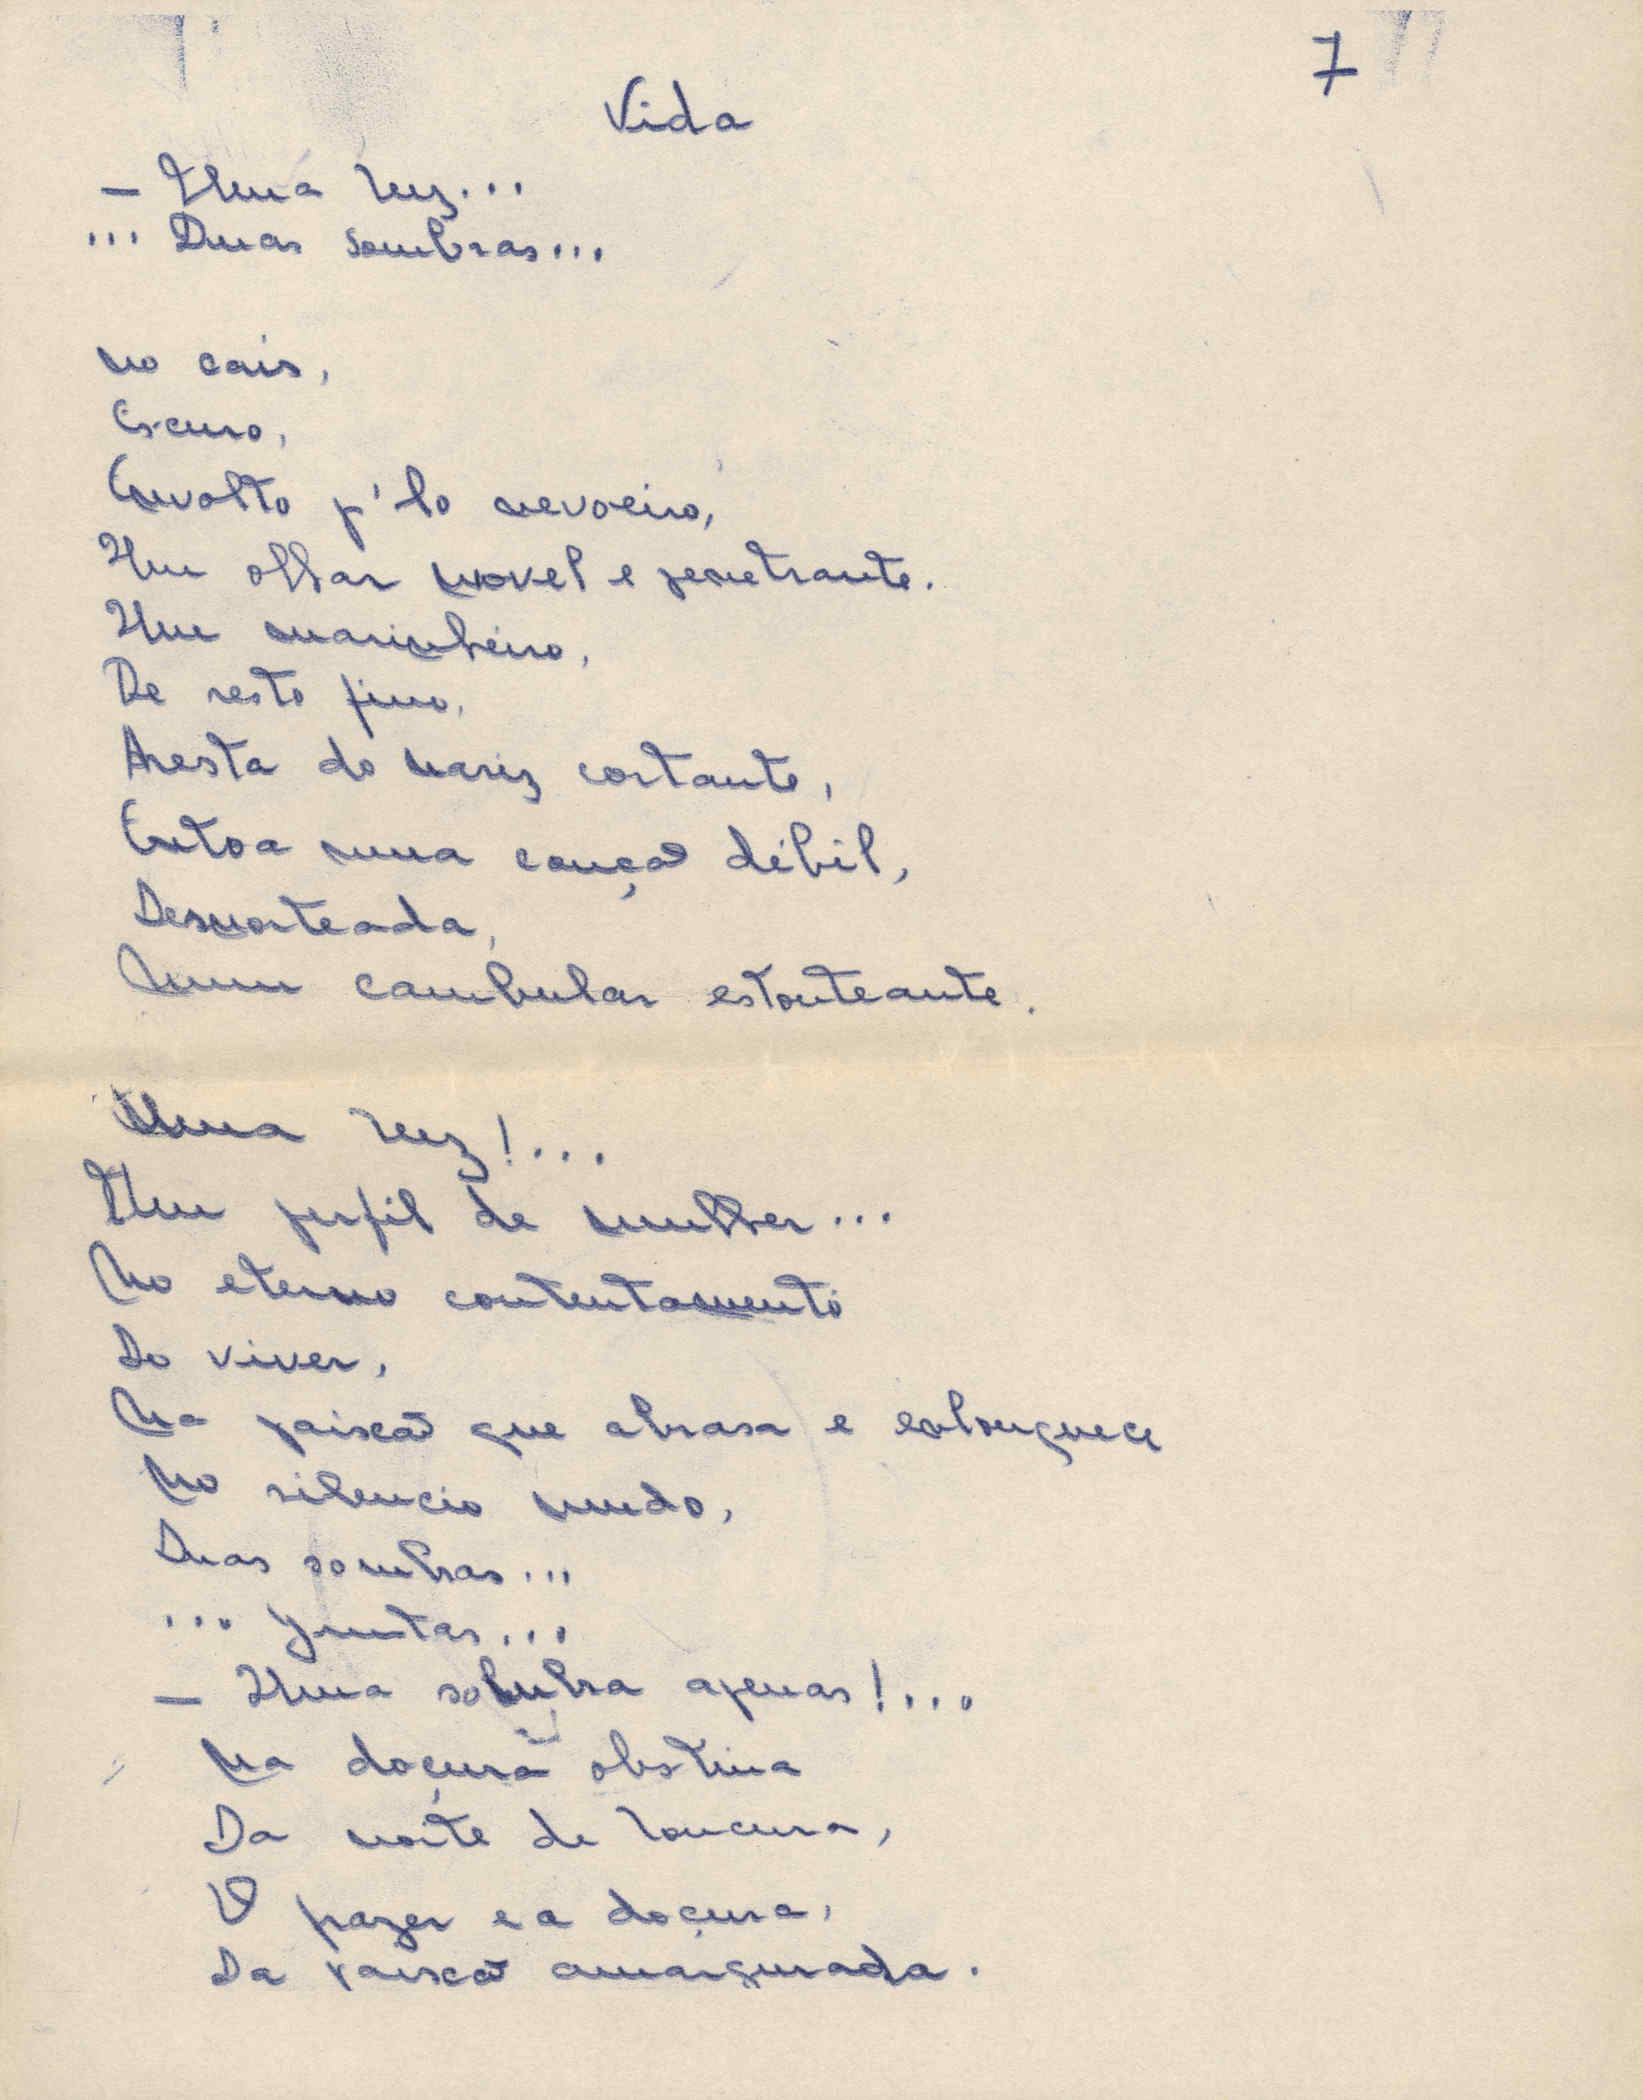 7
Vida
- Uma luz...
... Duas sombras...
no cais,
Escuro,
Envolto p'lo nevoeiro,
Um olhar movel e penetrante.
Um marinheiro,
De resto fino,
Aresta do nariz cortante,
Entoa numa canção débil,
Desnorteada,
Num cambular estonteante.
Uma luz!...
Um perfil de mulher...
No eterno contentamento
Do viver,
Na paixão que abrasa e enlouquece
No silencio mudo,
Duas sombras...
... Juntas...
- Uma sombra apenas!...
Na doçura obstina
Da noite de loucura,
O prazer e a doçura,
Da paixão amargurada.